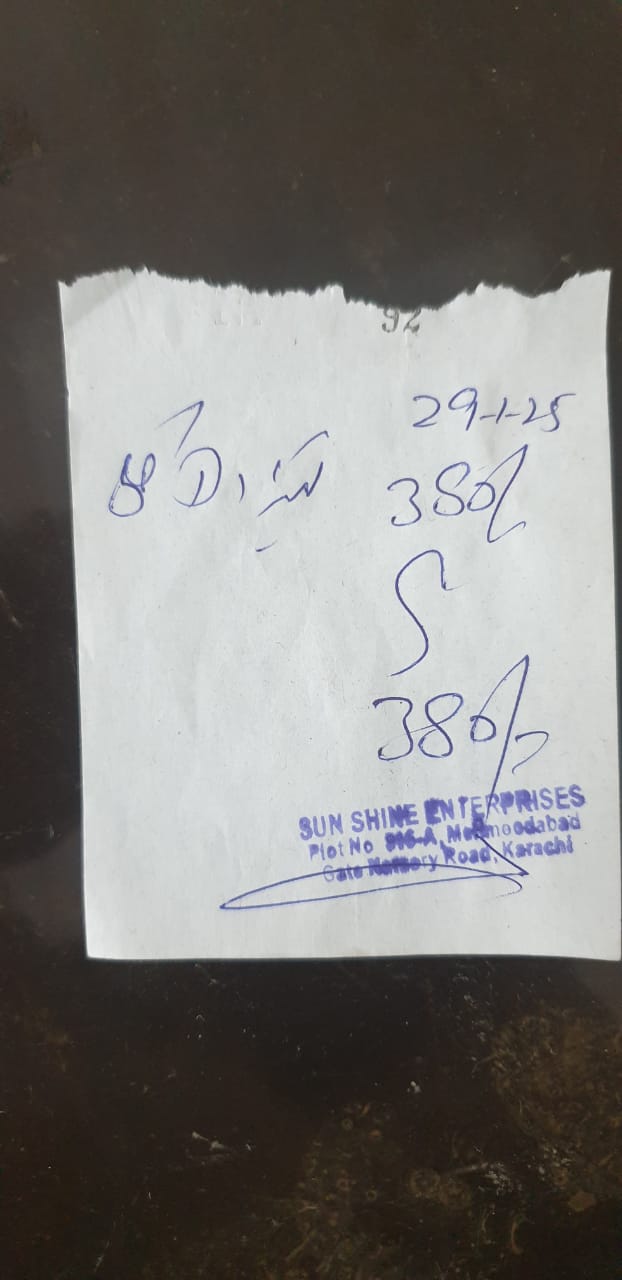 92
29-1-25
380/
380/-
SUN SHINE ENTERPRISES
Plot No 916-A, Mehmoodabad
Gate Road, Karachi